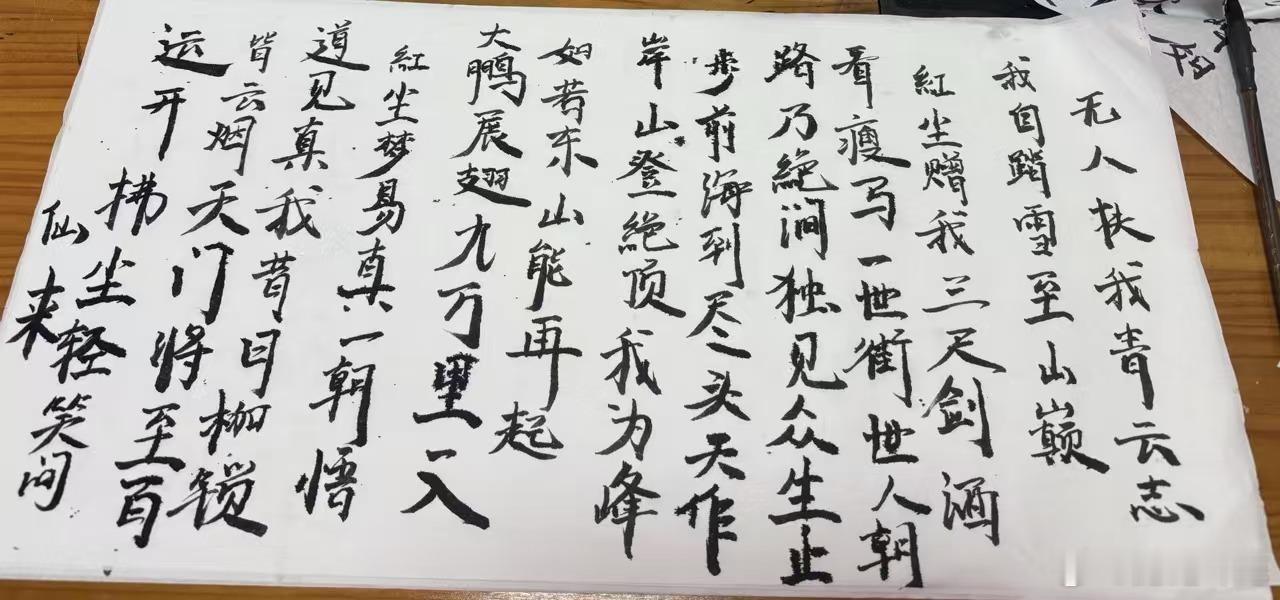 无人扶我青云志
我自踏雪至山巅
紅尘赠我三尺剑涵
看瘦马一世街世人朝
路乃絶涧独见众生止
步前海到尽头天作
岸山登絶顶我为峰
如若东山能再起
大鹏展翅九万里一入
紅尘梦易真一朝悟
道见真我昔日枷锁
皆云烟天门将至百
运开拂尘轻笑问
仙来